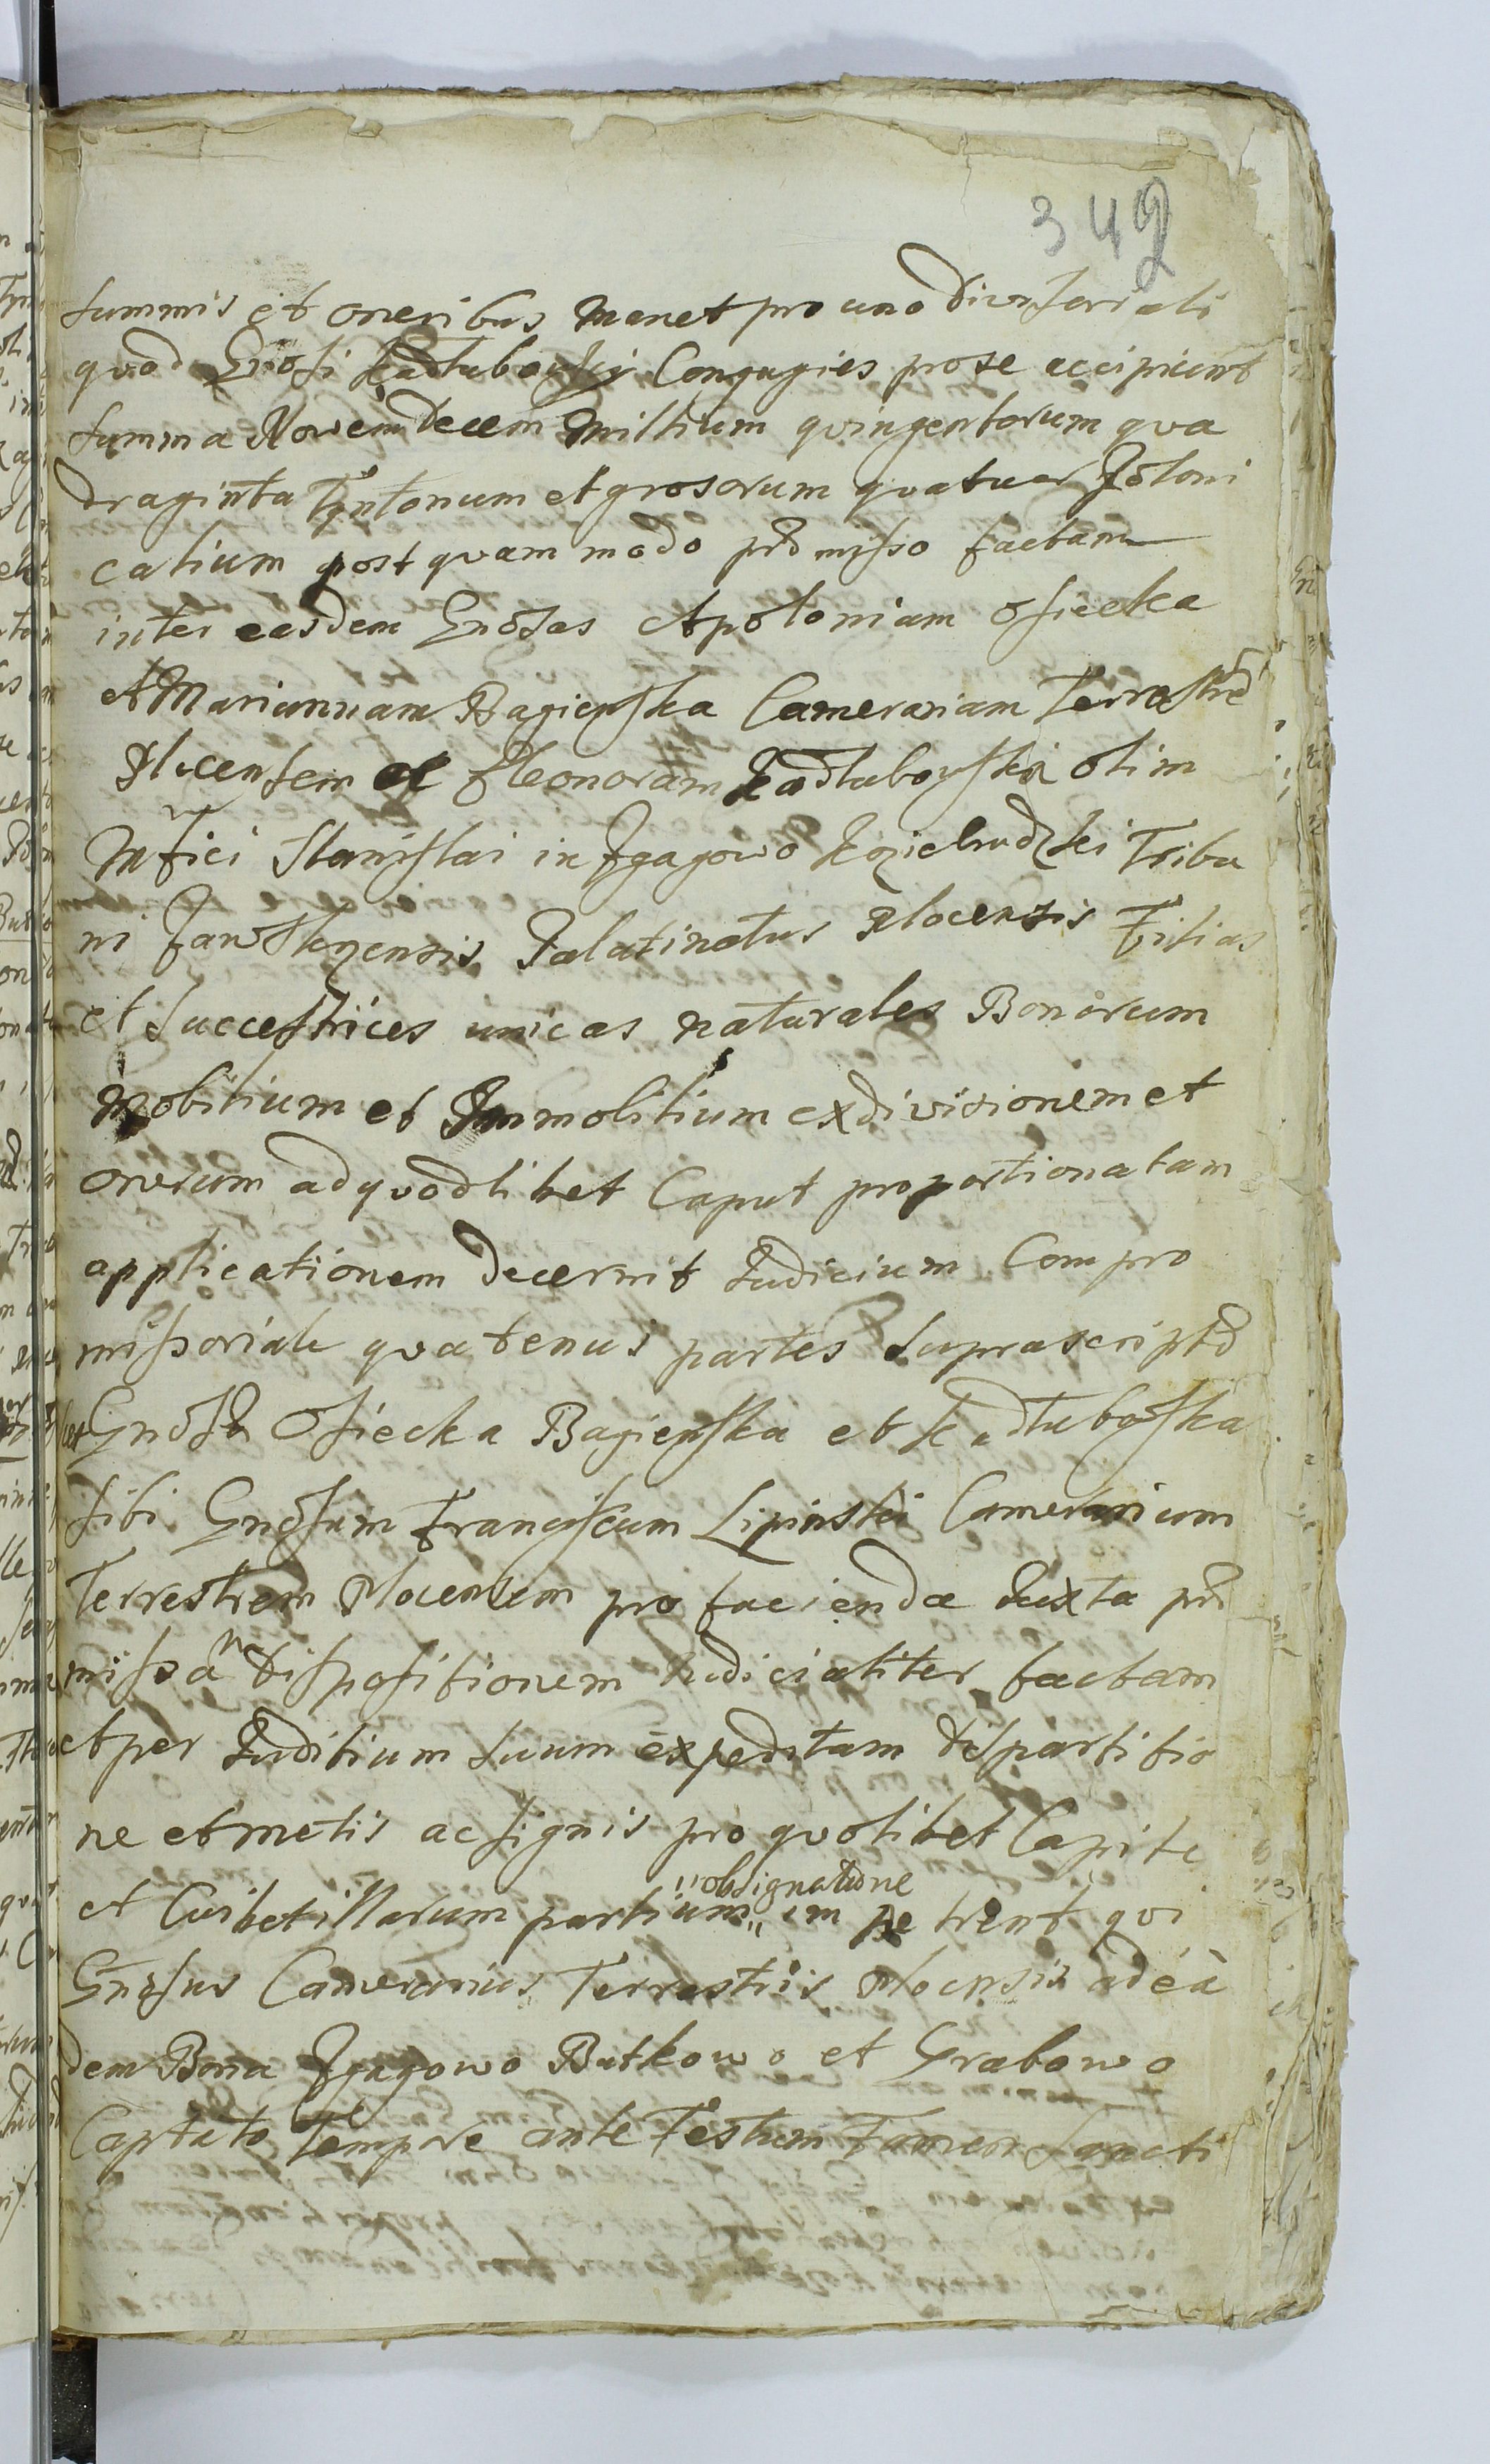 342
summis et oneribus manet pro uno
quod Gnosi Kadłubowscy Conjugies pro se accipient
summa Novemdecem millium quingentorum qua
draginta Tynfonum et grosorum quatuor Poloni
calium post quam modo prd misso factam
inter easdem Gnosas Apoloniam Osiecka
et Mariannam Bagieńska Camerariam Terrestrē
Plocensem ac Eleonoram Kadłubowska olim
Mfici Stanislai in Zgagowo Koziebrodzki Tribu
ni Zawskrzensis Palatinatus Plocensis Filias
et Successtrices unicas naturales Bonorum
mobilium et Immobilium exdivisionem et
onerum ad quodlibet Caput proportionatam
applicationem decernit Judicium Compro
missoriale quatenus partes Suprascriptd
Gnosd Osiecka Bagieńska et Kadłuboska
sibi Gnosum Franciscum Lipinski Camerarium
Terrestrem Plocensem pro facienda Juxta prd
missam dispositionem Judicialiter factam
et per Juditium suum expeditam dispartitio
ne et metis ac signis pro quolibet Capite
obsignatione
et Cuibet illarum partium im pe trent qui
Gnosus Camerarius Terrestris Plocensis ad eā
dem Bona Zgagowo Butkowo et Grabowo
Captato Tempore ante Festum Tamen Sancti